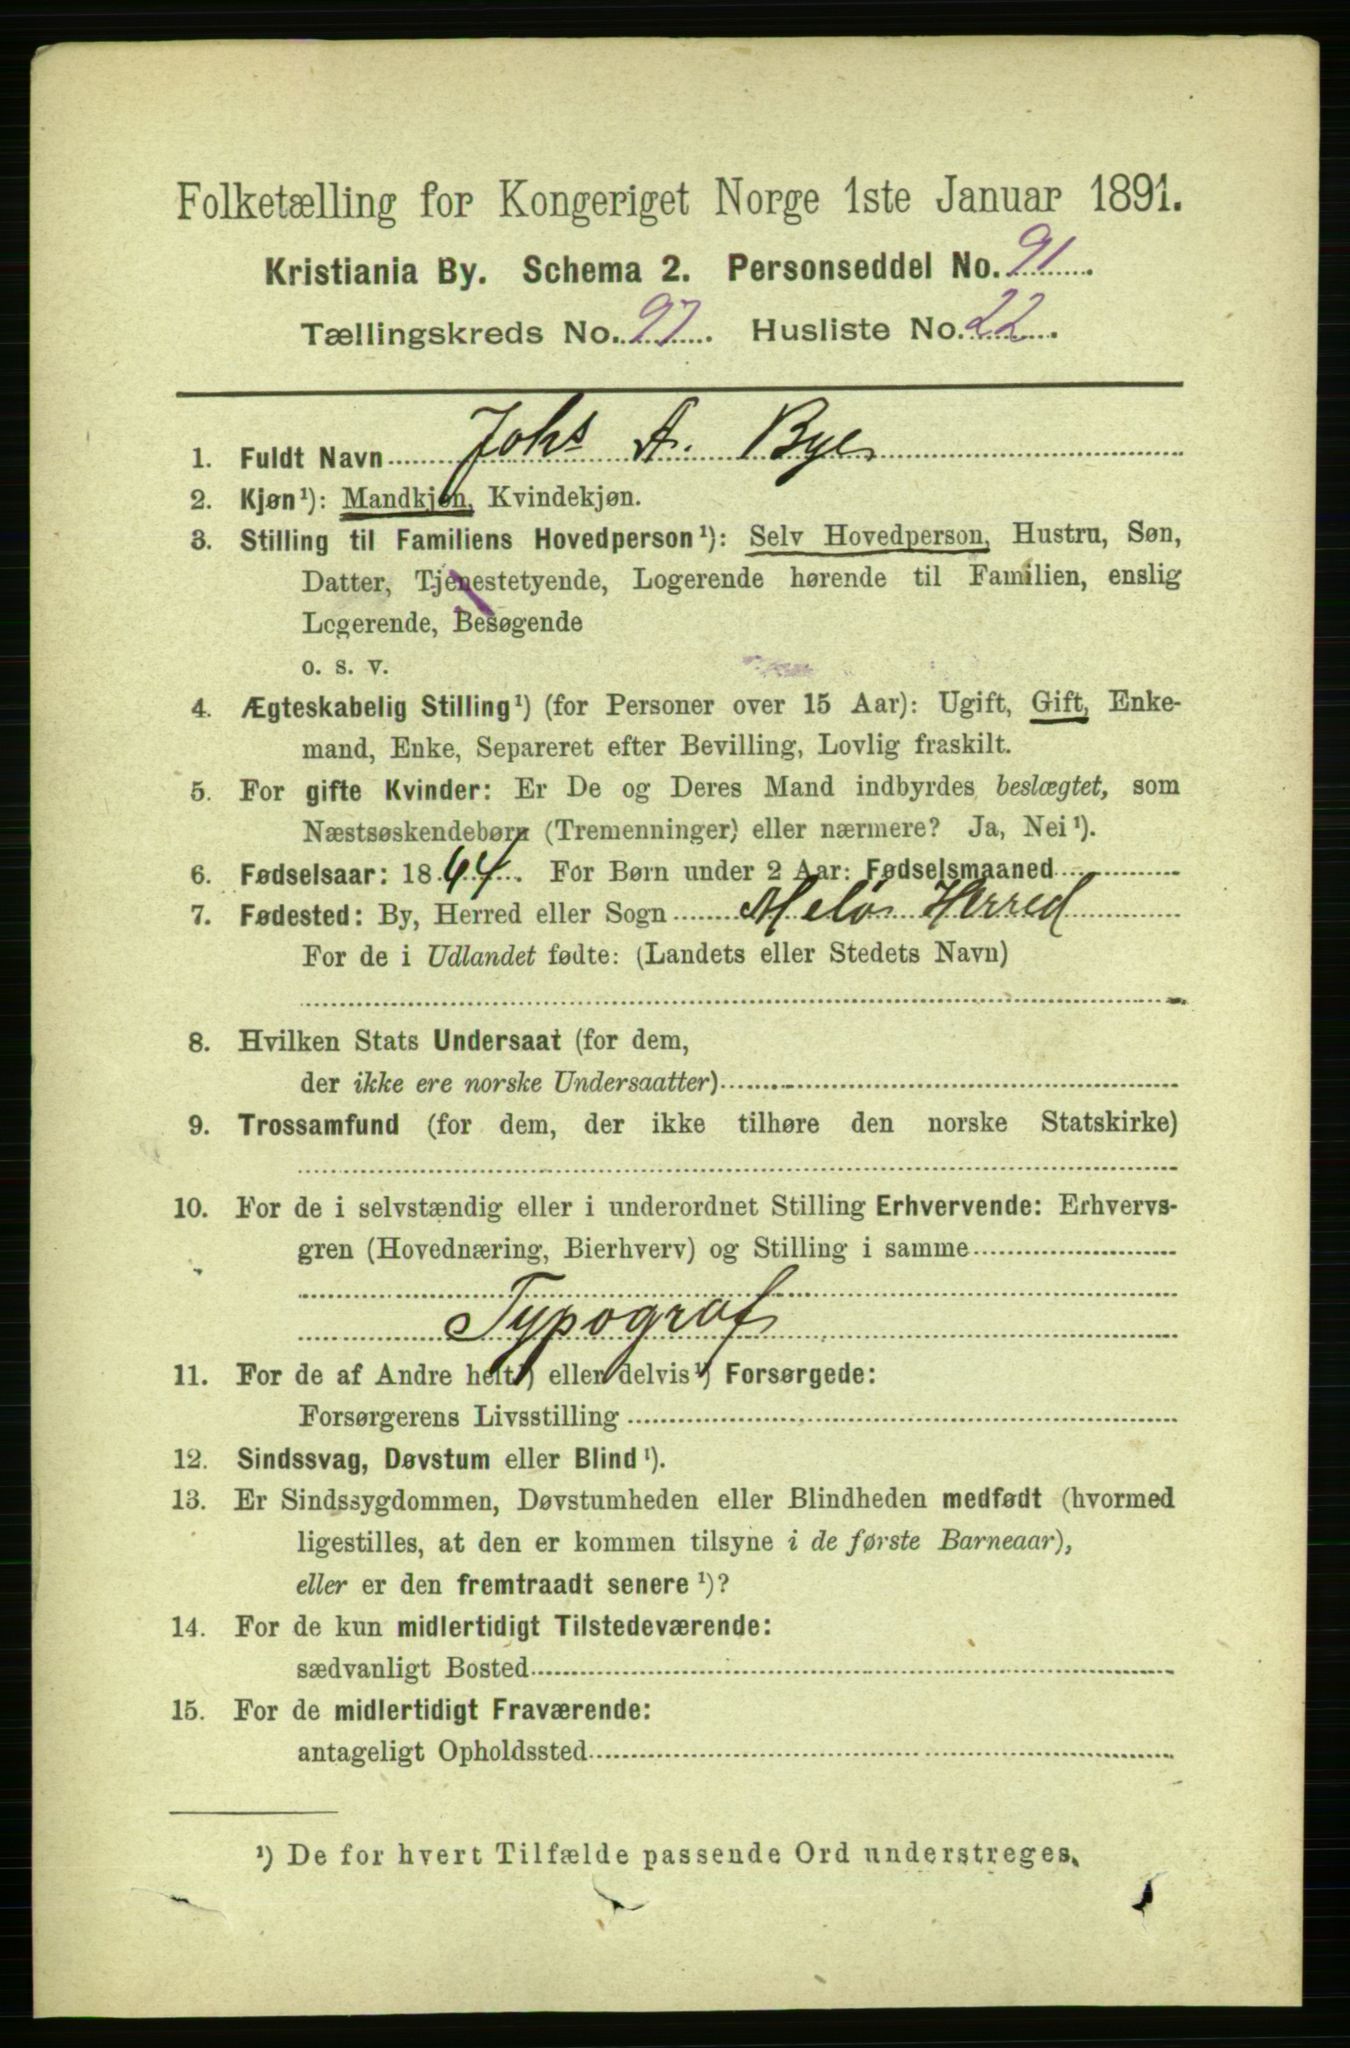 Folketælling for Kongeriget Norge 1ste Januar 1891.
Kristiania By. Schema 2. Personseddel No. 91
Tællingskreds No. 97. Husliste No. 22.
1. Fuldt Navn Johs A. Bye
2. Kjøn¹): Mandkjøn, Kvindekjøn.
3. Stilling til Familiens Hovedperson¹): Selv Hovedperson, Hustru, Søn,
Datter, Tjenestetyende, Logerende hørende til Familien, enslig
Logerende, Besøgende
o. s. v.
4. Ægteskabelig Stilling¹) (for Personer over 15 Aar): Ugift, Gift, Enke-
mand, Enke, Separeret efter Bevilling, Lovlig fraskilt.
5. For gifte Kvinder: Er De og Deres Mand indbyrdes beslægtet, som
Næstsøskendebørn (Tremenninger) eller nærmere? Ja, Nei¹).
6. Fødselsaar: 1864. For Børn under 2 Aar: Fødselsmaaned
7. Fødested: By, Herred eller Sogn Melø Herred
For de i Udlandet fødte: (Landets eller Stedets Navn)
8. Hvilken Stats Undersaat (for dem,
der ikke ere norske Undersaatter)
9. Trossamfund (for dem, der ikke tilhøre den norske Statskirke)
10. For de i selvstændig eller i underordnet Stilling Erhvervende: Erhvervs-
gren (Hovednæring, Bierhverv) og Stilling i samme
Typograf
11. For de af Andre helt¹) eller delvis¹) Forsørgede:
Forsørgerens Livsstilling
12. Sindssvag, Døvstum eller Blind¹).
13. Er Sindssygdommen, Døvstumheden eller Blindheden medfødt (hvormed
ligestilles, at den er kommen tilsyne i de første Barneaar),
eller er den fremtraadt senere¹)?
14. For de kun midlertidigt Tilstedeværende:
sædvanligt Bosted
15. For de midlertidigt Fraværende:
antageligt Opholdssted
¹) De for hvert Tilfælde passende Ord understreges.